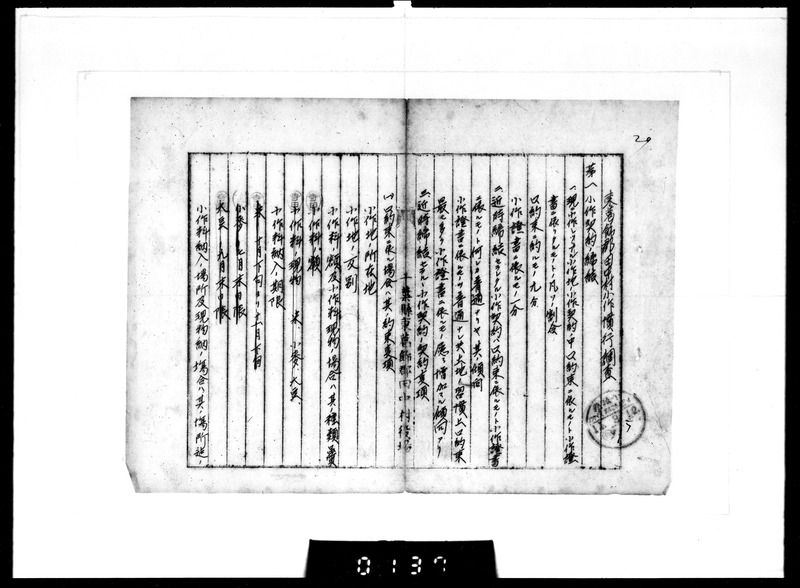 29
東葛飾郡田中村小作慣行調査
第一、小作契約締結
一、現小作シツヽアル小作地小作契約ノ中口約束ニ依ルモノト小作證
書ニ依リタルモノト凡ソ割合
口約束ノ約ルモノ 九分
小作證書ニ依ルモノ 一分
二、近時締結セラルヽ小作契約ハ口約束ニ依ルモノト小作證書
ニ依ルモノト何レカ普通ナリヤ、其ノ傾向
小作證書ニ依ルモノ普通ナレ共土地ノ習慣上口約束
最モ多ク小作證書ニ依ルモノ應々増加スル傾向アリ
三、近時締結セラルヽ小作契約ノ契約事項
千葉縣東葛飾郡田中村役場
(一)口約束ニ依ル場合ハ其ノ約束事項
小作地ノ所在地
小作地ノ反別
小作料ノ額及小作料現物ノ場合ハ其ノ種類品質
小作料ノ額
小作料ノ現物 米、小麥、大豆、
小作料納入ノ期限
米 十月下旬ヨリ十二月下旬
小麥 七月末日限
大豆 九月末日限
小作料納入ノ場所及現物納ノ場合ハ其ノ場所迄ノ
0137